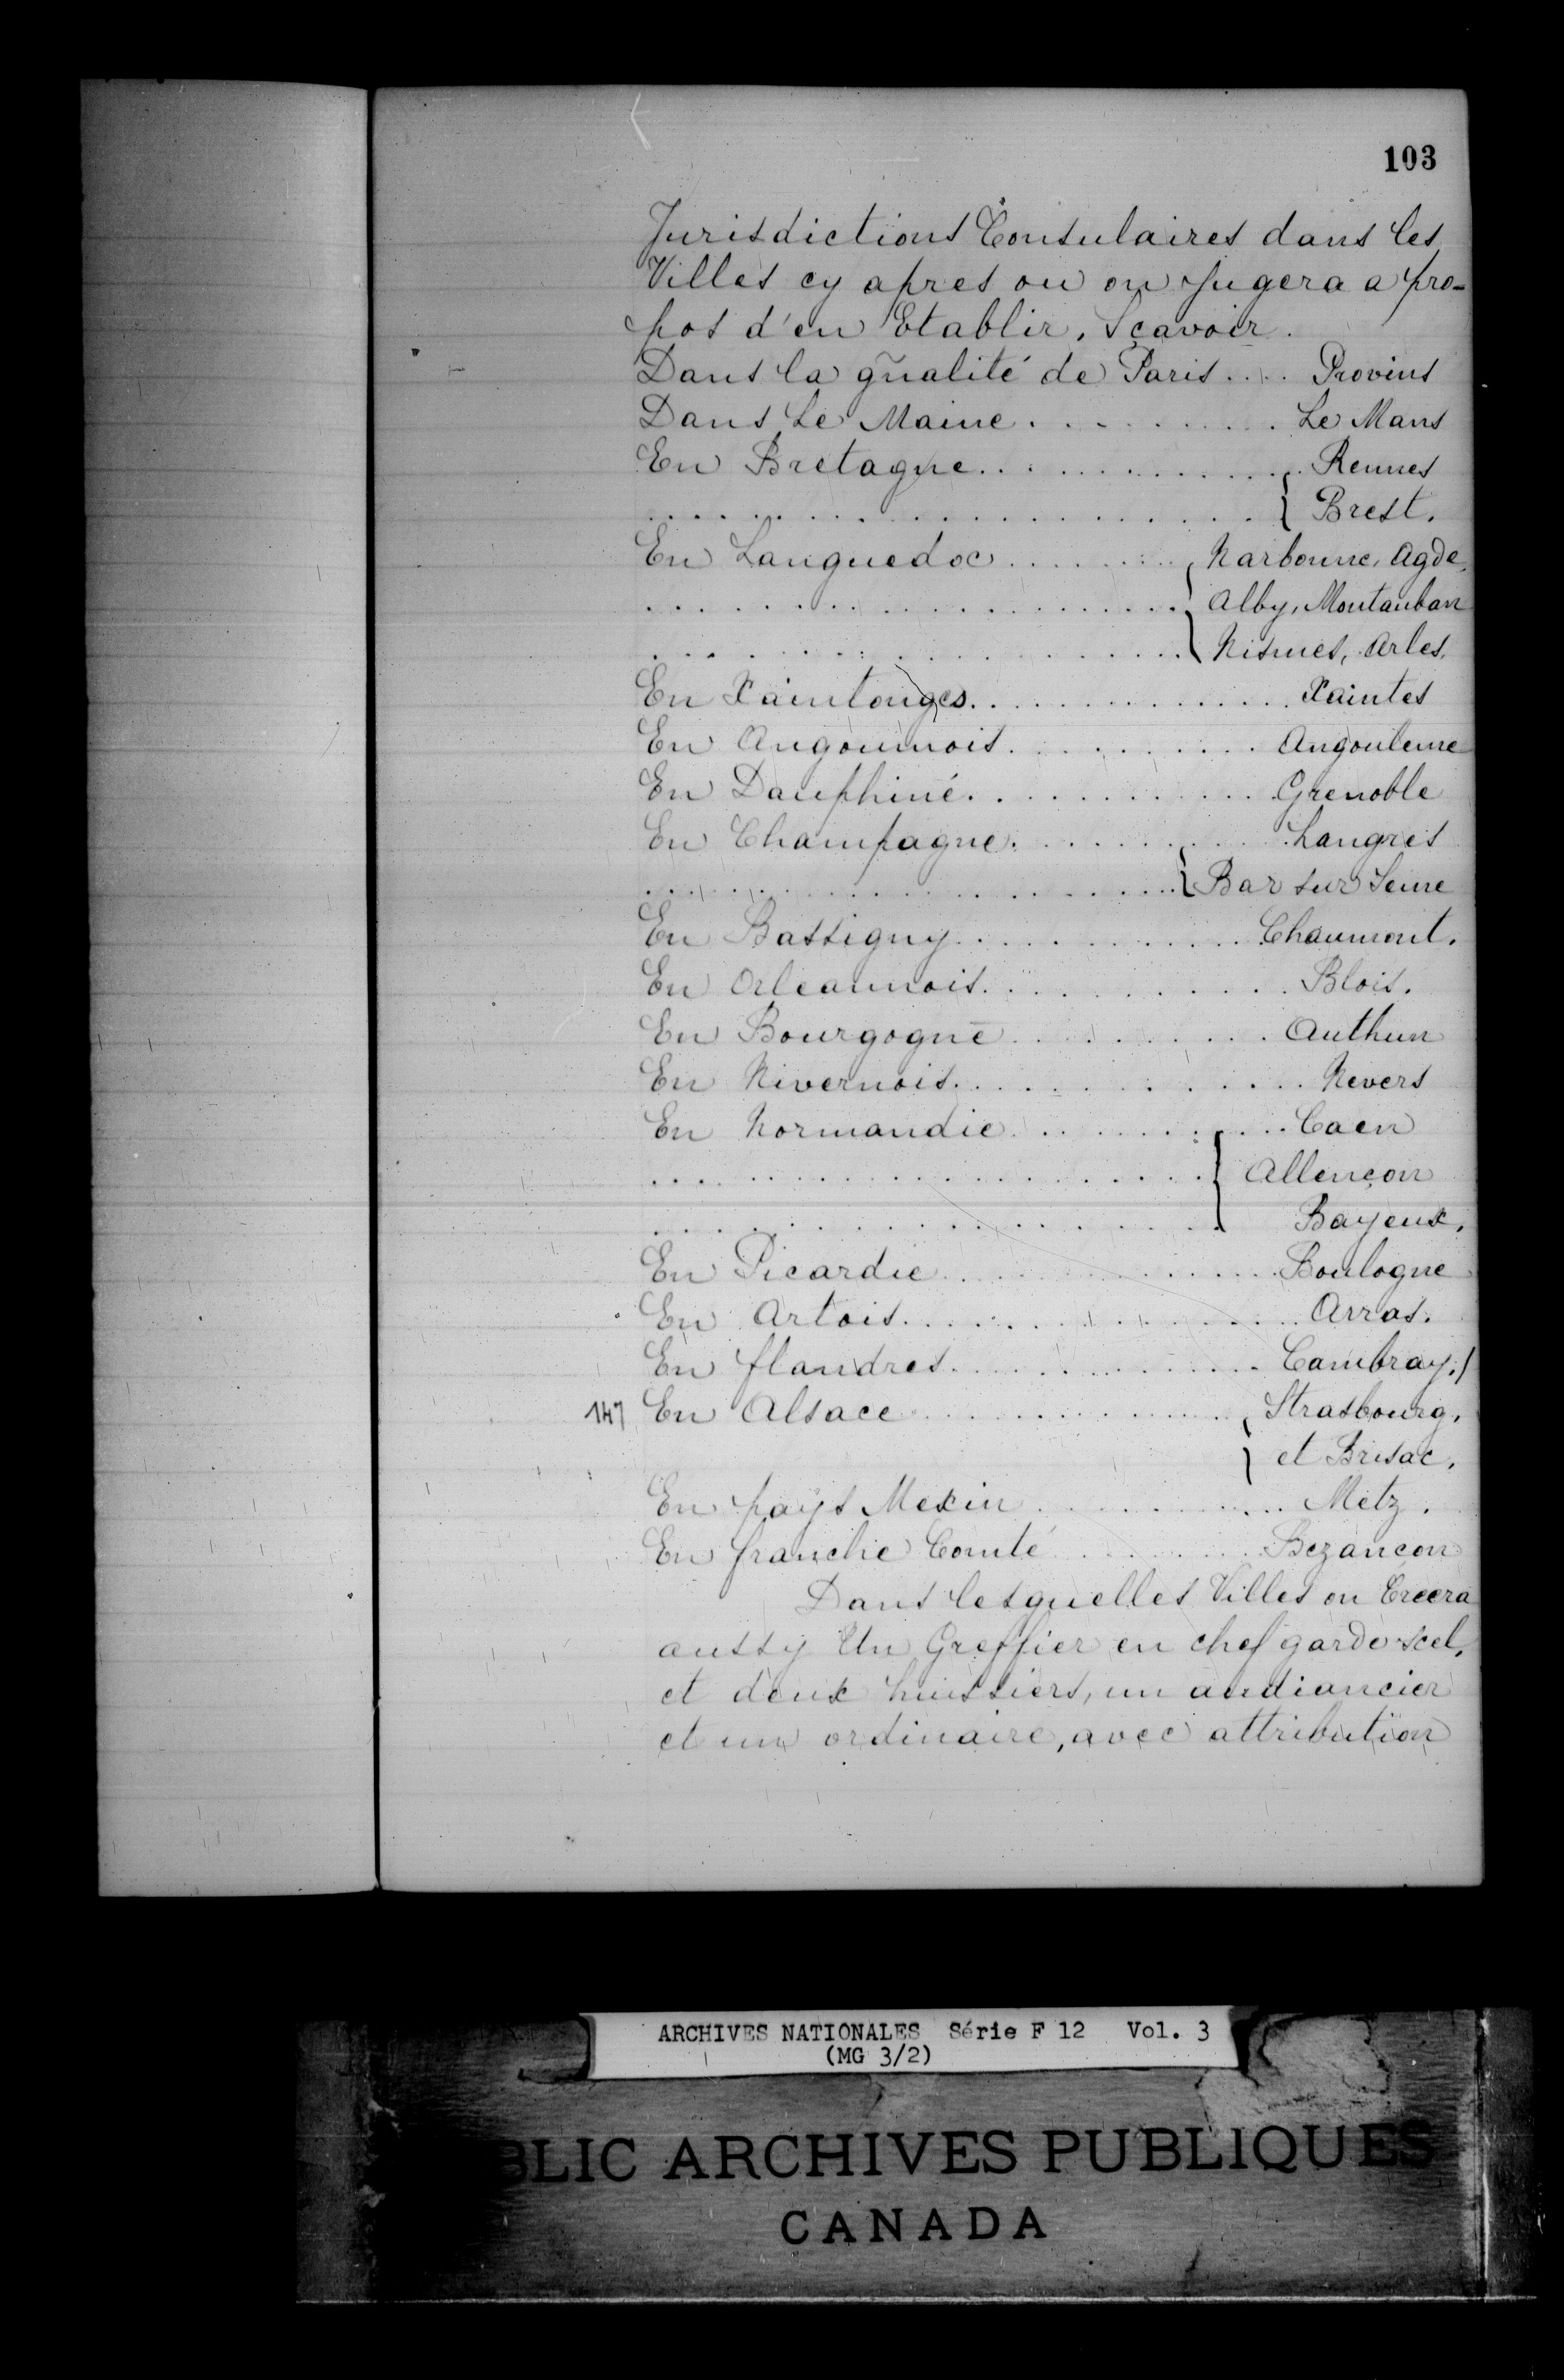 103
Jurisdictions Consulaires dans les
Villes cy apres ou on jugera a pro-
pos d'en Etablir, Sçavoir.
Dans la gñalité de Paris.... Provins
Dans Le Maine......... Le Mans
En Bretagne............ Rennes
...................... { Brest.
En Languedoc......... Narbonne, Agde,
..................... { Alby, Montauban
..................... Nismes, Arles,
En Xaintonges.............. Xaintes
En Angoumois.......... Angouleme
En Dauphiné............ Grenoble
En Champagne........... Langres
..................... { Bar sur Seine
En Bassigny............ Chaumont.
En Orleannois............ Blois.
En Bourgogne.......... Authun
En Nivernois............. Nevers
En Normandie............ Caen
..................... { Allençon
..................... Bayeux.
En Picardie.............. Boulogne
En Artois................ Arras.
En flandres.............. Cambray./
147 En Alsace............... { Strasbourg,
et Brisac.
En pays Mexin........... Metz.
En franche Comté......... Bezançon
Dans lesquelles Villes on Créera
aussy Un Greffier en chef garde scel,
et deux huissiers, un audiancier
et un ordinaire, avec attribution
ARCHIVES NATIONALES Série F 12 Vol. 3
(MG 3/2)
BLIC ARCHIVES PUBLIQUES
CANADA